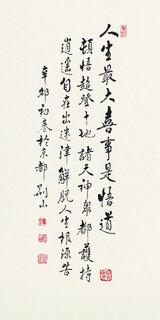 人生最大喜事是悟道
頓悟超登十地諸天神衆都護持
逍遙自在出迷津解脫人生根源苦
辛卯初春於京都